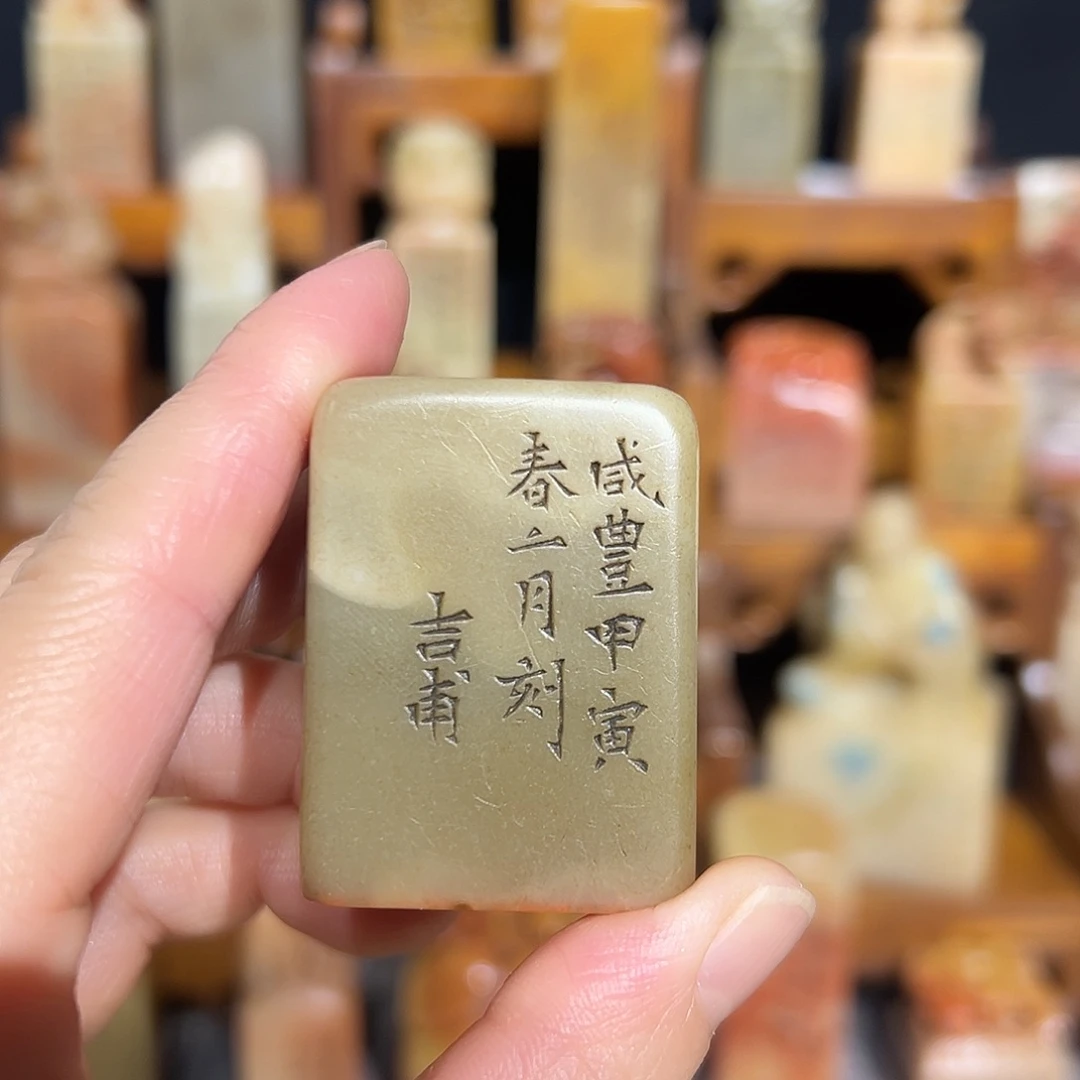 咸豐甲寅
春二月刻
吉甫